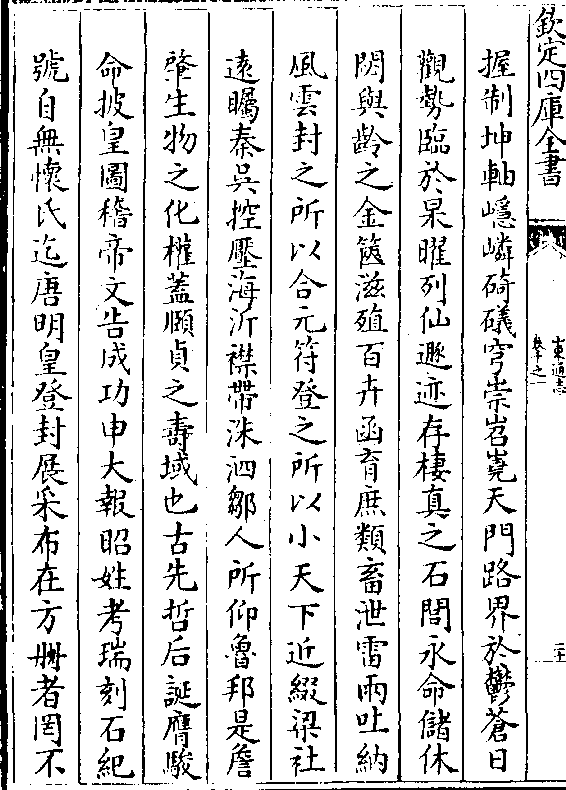 欽定四庫全書
東通志
卷之一
二十一
握制坤軸嶾嶙碕礒穹崇岧嶤天門路界於鬱蒼日
觀勢臨於杲曜列仙遯迹存棲真之石閭永命儲休
閟與齡之金篋滋殖百卉函育庶類畜泄雷雨吐納
風雲封之所以合元符登之所以小天下近綴梁社
遠矚秦吳控壓海沂襟帶洙泗鄒人所仰魯邦是詹
肇生物之化權蓋頤貞之壽域也古先哲后誕膺駿
命披皇圖稽帝文告成功申大報昭姓考瑞刻石紀
號自無懷氏迄唐明皇登封展采布在方冊者罔不